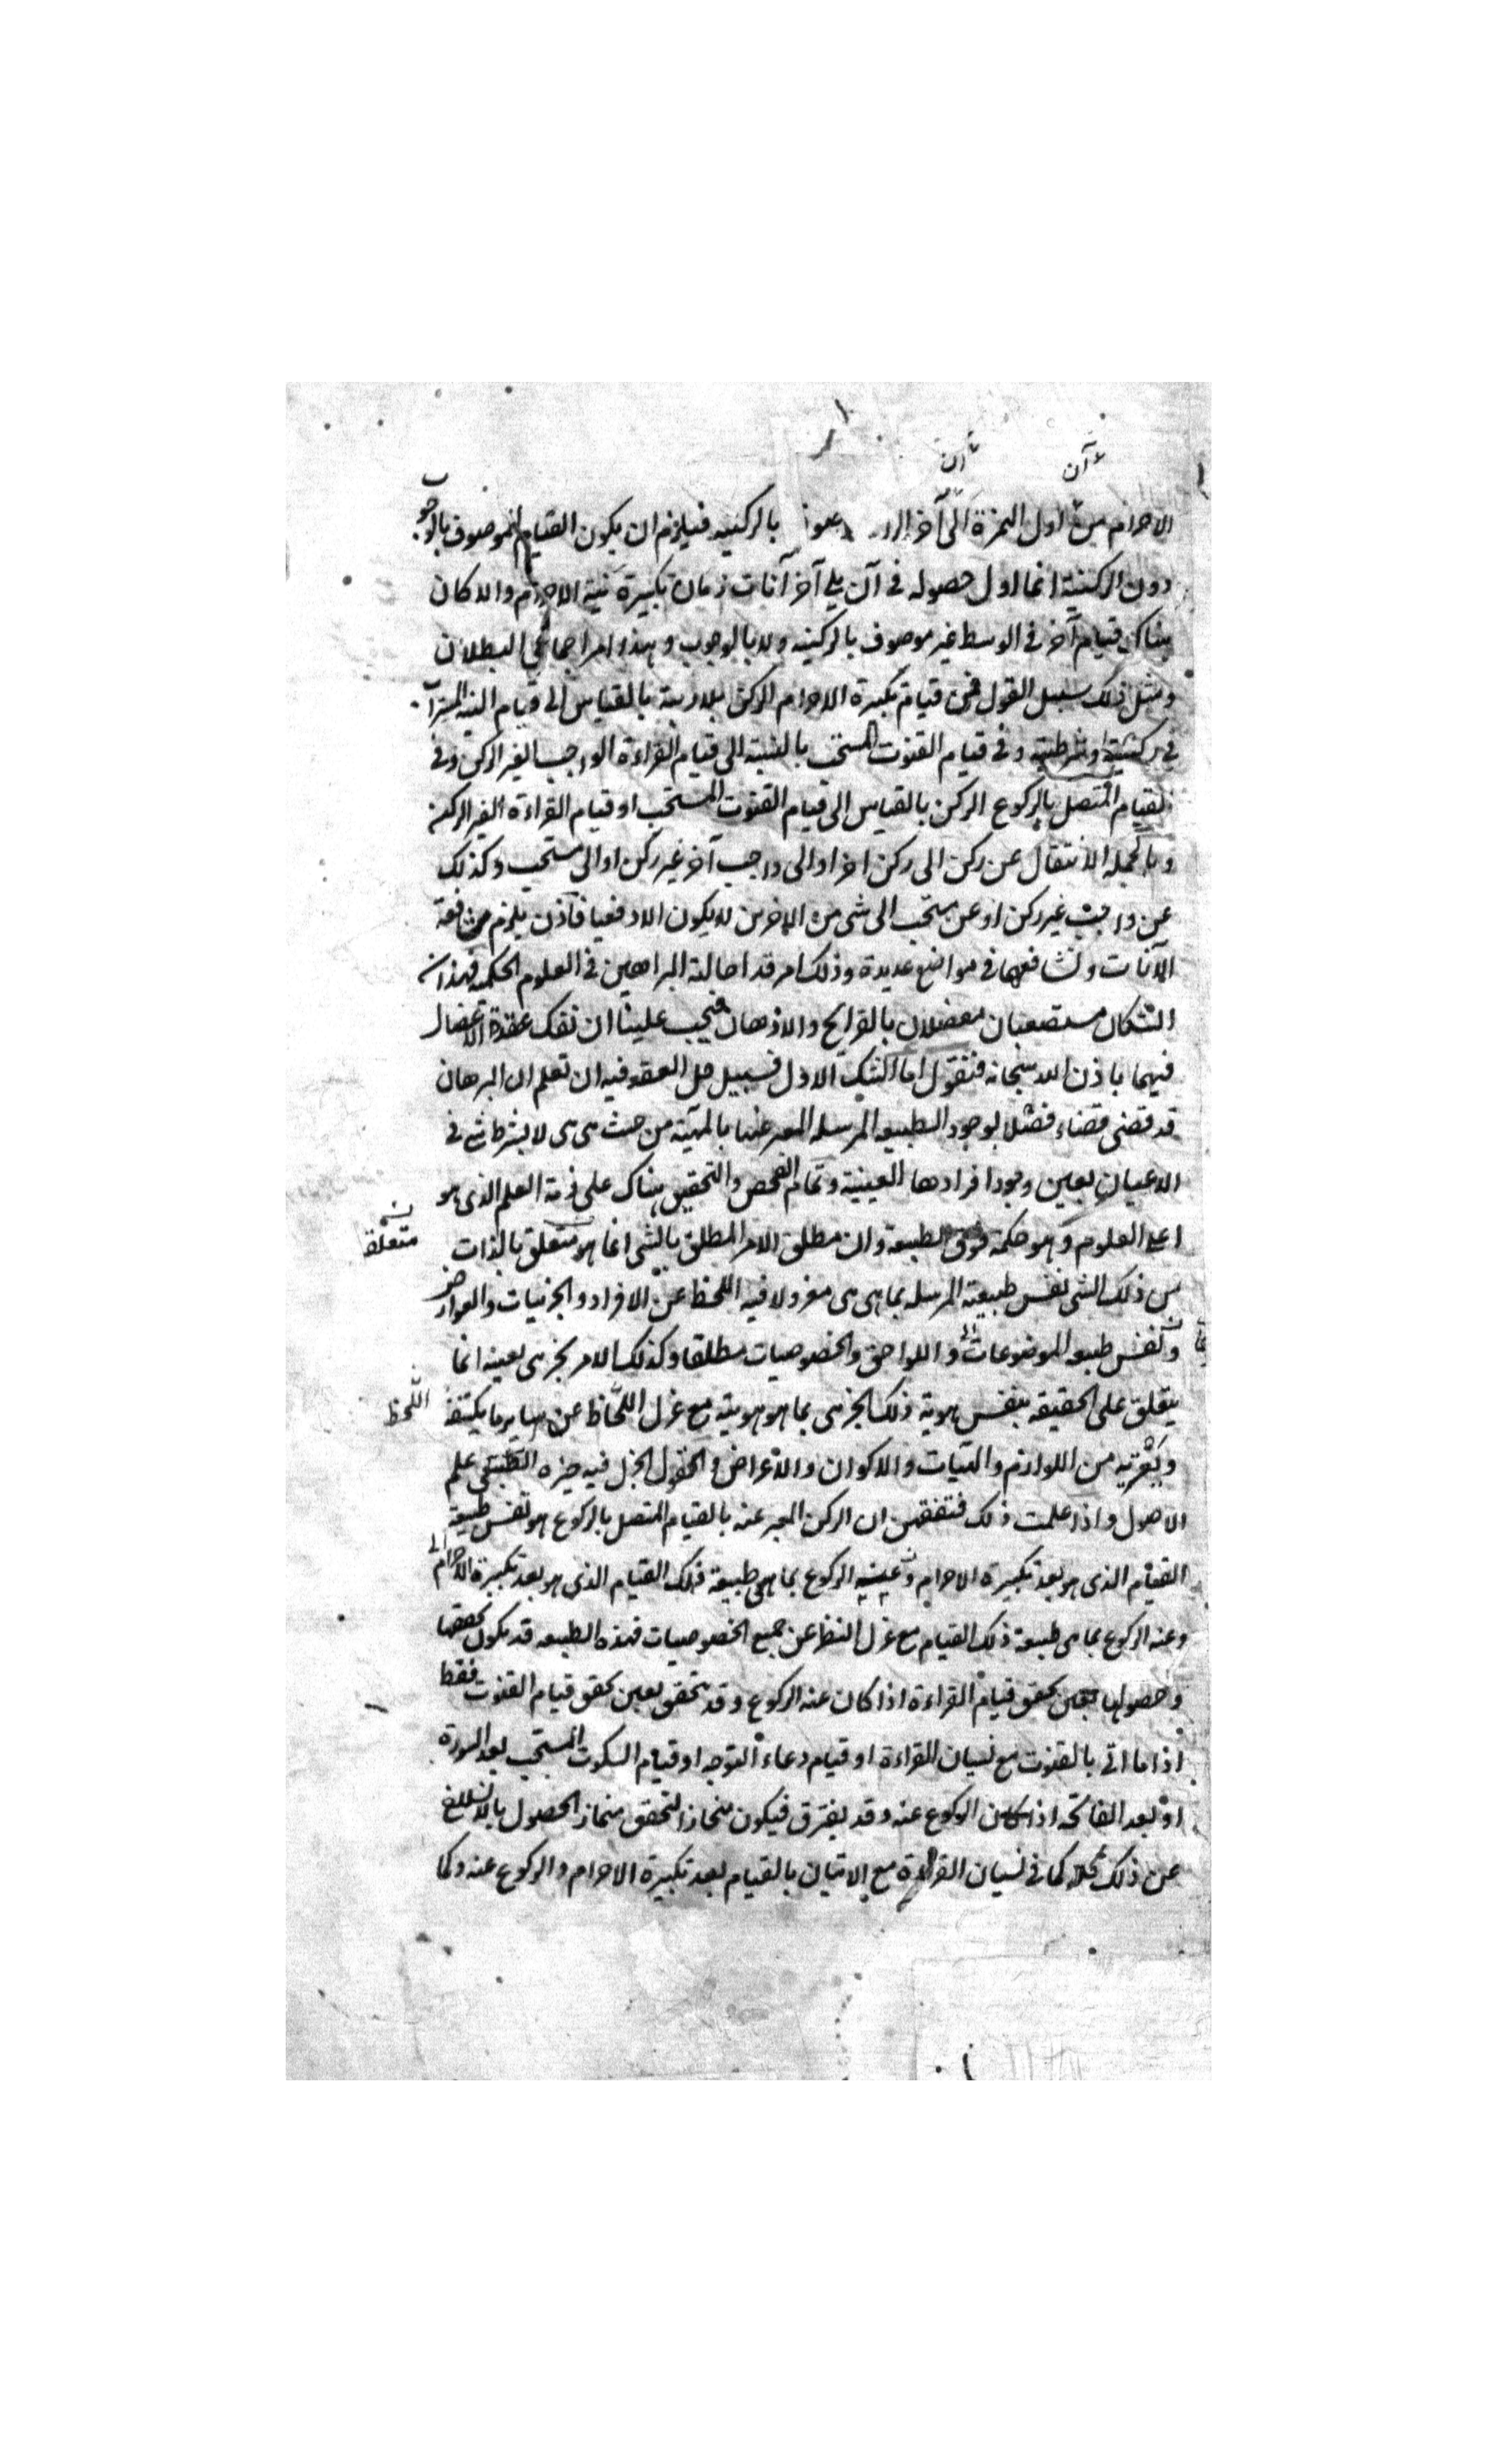 آن
آن
الاحرام من اول الهمزة الى آخر بالركنيه فيلزم ان يكون القيام الموصوف بالوجوب
دون الركنية انما اول حصوله فى آن يلى آخر آنات زمان تكبيرة نية الاحرام والا كان
هناك قيام آخر فى الوسط غير موصوف بالركنيه ولا بالوجوب وهذا امر اجماعى البطلان
ومثل ذلك سبيل القول فى قيام تكبيرة الاحرام الركن بلا ريبة بالقياس الى قيام النية
فى ركنيته او شرطيته وفى قيام القنوت المستحب بالنسبة الى قيام القراءة الواجب الغير الركن وفى
القيام المتصل بالركوع الركن بالقياس الى قيام القنوت المستحب او قيام القراءة الغير الركن
وبالجمله الانتقال عن ركن الى ركن اخر او الى واجب آخر غير ركن او الى مستحب وكذلك
عن واجب غير ركن او عن مستحب الى شى من الاخرين لا يكون الا دفعيا فاذن يلزم
الآنات وتشافعها فى مواضع عديدة وذلك امر قد احالته البراهين فى العلوم الحكميه فهذان
الشكان مستصعبان معضلان بالقرائح والاذهان فيجب علينا ان نفك عقدة الاعضال
فيهما باذن الله سبحانه فنقول اما الشك الاول فسبيل حل العقد فيه ان تعلم ان البرهان
قد قضى قضاء فصلا بوجود الطبيعه المرسله المعبر عنها بالمهية من حيث هى هى لا بشرط شى فى
الاعيان بعين وجود افرادها العينية وتمام الفحص والتحقيق هناك على ذمة العلم الذى هو
اعلى العلوم وهو حكمة فوق الطبيعة وان مطلق الامر المطلق بالشى انما هو متعلق بالذات
متعلقه
من ذلك الشى نفس طبيعته المرسله بما هى هى معزولا فيه اللحظ عن الافراد والجزئيات والعوارض
ونفس طبيعه الموضوعات واللواحق والخصوصيات مطلقا وكذلك الامر بجزئى بعينه انما
يتعلق على الحقيقه بنفس هوية ذلك الجزئى بما هو هويته مع عزل اللحاظ عن ساير ما يكتنفه
اللحظ
ويعتريه من اللوازم والهيئات والاكوان والاعراض و الجزل فيه حيزه الطبيعى علم
الاصول واذا علمت ذلك فتفقهن ان الركن المعبر عنه بالقيام المتصل بالركوع هو نفس طبيعة
القيام الذى هو بعد تكبيرة الاحرام وعنه الركوع بما هى طبيعة ذلك القيام الذى هو بعد تكبيرة الاحرام
وعنه الركوع بما هى طبيعة ذلك القيام مع عزل النظر عن جميع الخصوصيات فهذه الطبيعه قد يكون تحققها
وحصولها بعين تحقق قيام القراءة اذا كان عنه الركوع وقد تتحقق بعين تحقق قيام القنوت فقط
اذا ما اتى بالقنوت مع نسيان القراءة او قيام دعاء التوجه او قيام السكوت المستحب بعد السورة
او بعد الفاتحه اذا كان الركوع عنه وقد يفترق فيكون منحاز التحقق منماز الحصول بالانسلاخ
عن ذلك كله كما فى نسيان القراءة مع الاتيان بالقيام بعد تكبيرة الاحرام والركوع عنه وكما